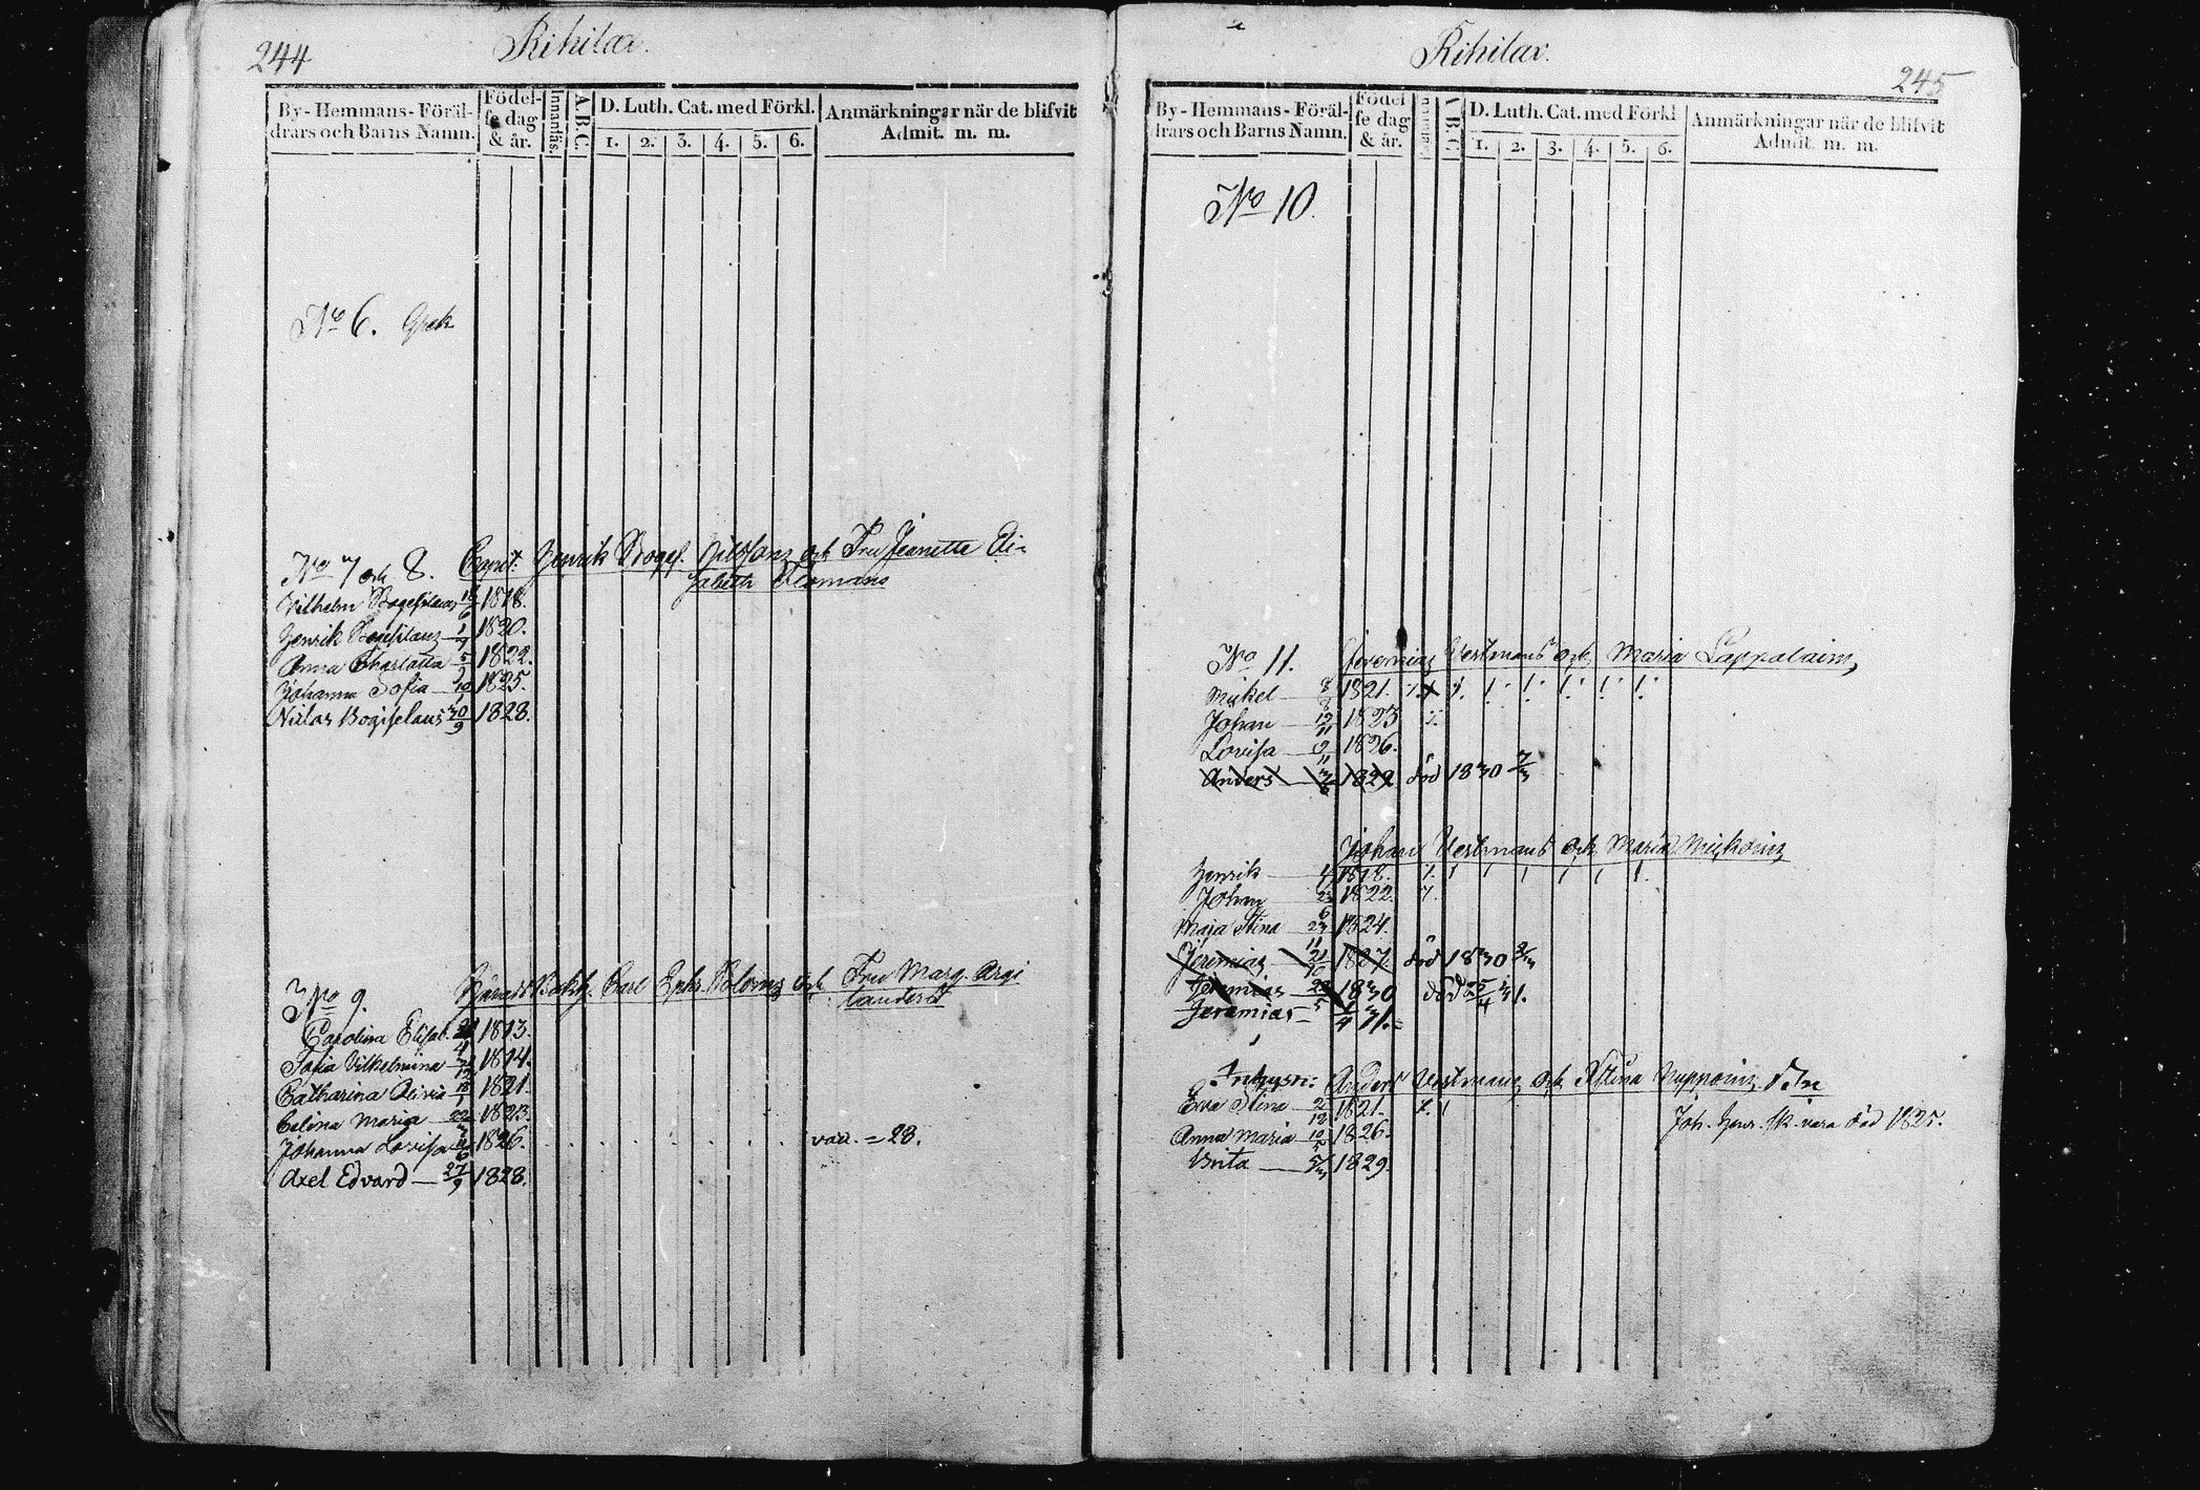 244
Rihilax.
By-Hemmans-Föräl-
drars och Barns Namn.
Födel-
se dag
& år.
Innanläs.
A.B.C.
D. Luth. Cat. med Förkl.
1. 2. 3. 4. 5. 6.
Anmärkningar när de blifvit
Admit. m. m.
No 6. Grek
No 7 och 8. Capit. Henrik Bogsl. och Fru Jeanette Eli-
sabeth
Vilhelm 1818.
Henrik 1/9 1820.
Anna Charlotta 5/9 1822.
Johanna Sofia 1825.
Niclas Bogislaus 30/9 1828.
No 9. Carl Ephr. Bloms och Fru Marg. Argi
landers
Carolina Elisab. 1813.
Sofia Vilhelmina 1814.
Catharina Olivia 18/1 1821.
Celina Maria 1823.
Johanna Lovisa 1826. vacc. = 28.
Axel Edvard 27/9 1828.
Rihilax.
245
By-Hemmans-Föräl-
drars och Barns Namn.
Födel
se dag
& år.
A.B.C.
D. Luth. Cat. med Förkl
1. 2. 3. 4. 5. 6.
Anmärkningar när de blifvit
Admit. m. m.
No 10.
No 11. Jeremias Vestmans och Maria Lappalains
Mickel 8/8 1821.
Johan 12/11 1823
Lovisa 9/11 1826.
Anders död 1830 7/3
Johan Vestmans och Maria Mickoins
Henrik 1818.
Johan 23/6 1822.
Maja Stina 23/11 1824.
Jeremias 21/10 1827. död 1830
Jeremias 1830 död 25/4 31.
Jeremias 1/4 31.
Inhysn: Anders Vestmans och Stina Nuppoins
Eva Stina 1821.
Joh. Henr. sk. vara död 1825.
Anna Maria 10/5 1826.
Brita 5/3 1829.